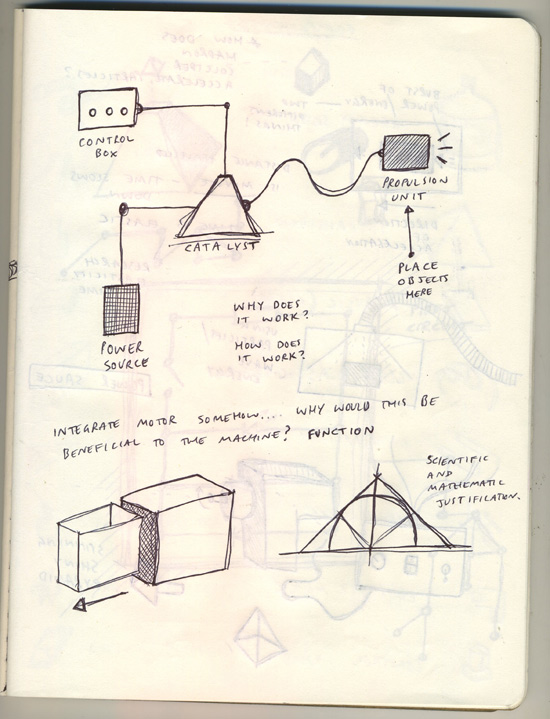 CONTROL
BOX
PROPULSION
UNIT
CATALYST
PLACE
OBJECTS
HERE
POWER
SOURCE
WHY DOES
IT WORK?
HOW DOES
IT WORK?
INTEGRATE MOTOR SOMEHOW.... WHY WOULD THIS BE
BENEFICIAL TO THE MACHINE? FUNCTION
SCIENTIFIC
AND
MATHEMATIC
JUSTIFICATION.